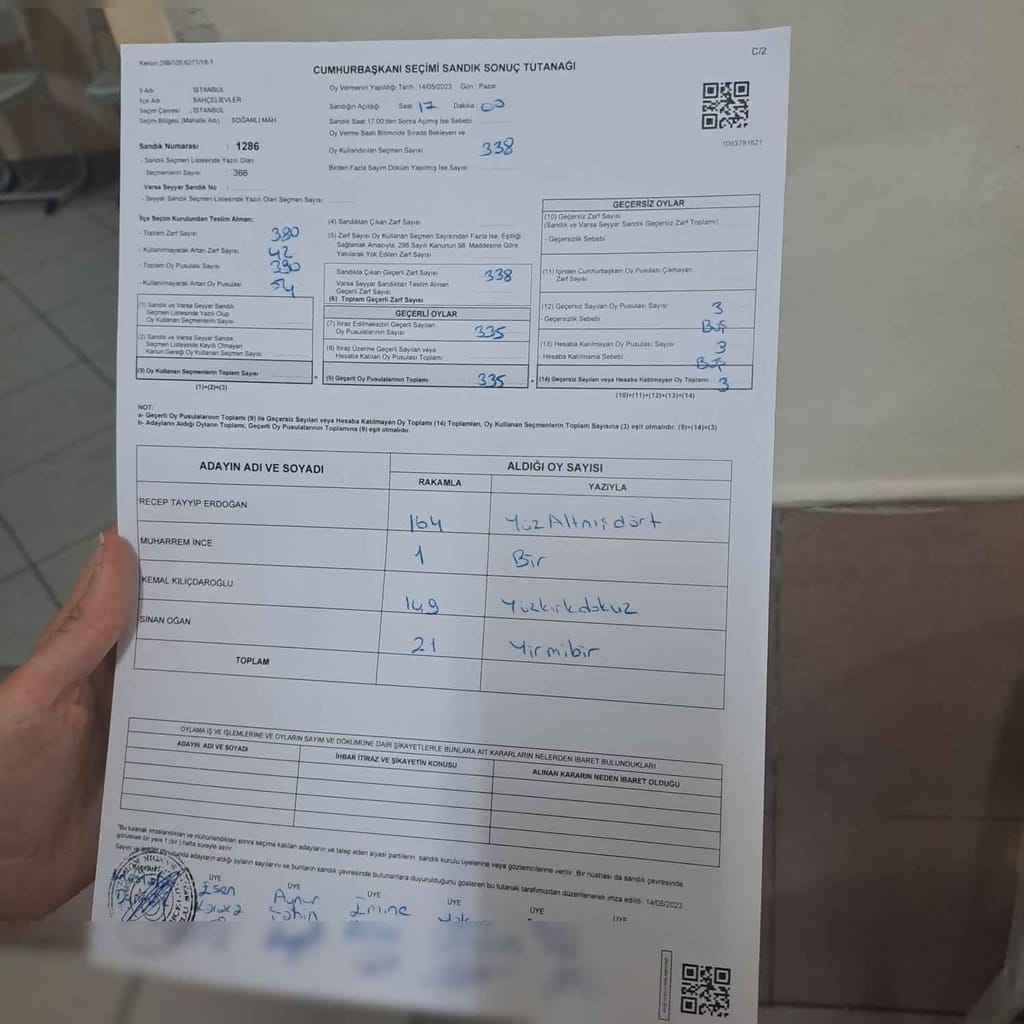 Kanun:298/105;6271/18-1
C/2
CUMHURBAŞKANI SEÇİMİ SANDIK SONUÇ TUTANAĞI
İl Adı : İSTANBUL
İlçe Adı : BAHÇELİEVLER
Seçim Çevresi : İSTANBUL
Seçim Bölgesi (Mahalle Adı) : SOĞANLI MAH.
Sandık Numarası : 1286
- Sandık Seçmen Listesinde Yazılı Olan
Seçmenlerin Sayısı : 386
Varsa Seyyar Sandık No :
- Seyyar Sandık Seçmen Listesinde Yazılı Olan Seçmen Sayısı :
Oy Vermenin Yapıldığı Tarih : 14/05/2023 Gün : Pazar
Sandığın Açıldığı Saat 17 Dakika 00
Sandık Saat 17:00'den Sonra Açımış İse Sebebi
Oy Verme Saati Bitiminde Sırada Bekleyen ve
Oy Kullandırılan Seçmen Sayısı 338
Birden Fazla Sayım Döküm Yapılmış İse Sayısı
1093781621
İlçe Seçim Kurulundan Teslim Alınan;
- Toplam Zarf Sayısı 380
- Kullanılmayarak Artan Zarf Sayısı 42
- Toplam Oy Pusulası Sayısı 390
- Kullanılmayarak Artan Oy Pusulası 54
(1) Sandık ve Varsa Seyyar Sandık
Seçmen Listesinde Yazılı Olup
Oy Kullanan Seçmenlerin Sayısı
(2) Sandık ve Varsa Seyyar Sandık
Seçmen Listesinde Kayıtlı Olmayan
Kanun Gereği Oy Kullanan Seçmen Sayısı
(3) Oy Kullanan Seçmenlerin Toplam Sayısı
(1)+(2)=(3)
=
(4) Sandıktan Çıkan Zarf Sayısı
(5) Zarf Sayısı Oy Kullanan Seçmen Sayısından Fazla İse, Eşitliği
Sağlamak Amacıyla; 298 Sayılı Kanunun 98. Maddesine Göre
Yakılarak Yok Edilen Zarf Sayısı
Sandıkta Çıkan Geçerli Zarf Sayısı 338
Varsa Seyyar Sandıktan Teslim Alınan
Geçerli Zarf Sayısı
(6) Toplam Geçerli Zarf Sayısı
GEÇERLİ OYLAR
(7) İtiraz Edilmeksizin Geçerli Sayılan
Oy Pusulalarının Sayısı 335
(8) İtiraz Üzerine Geçerli Sayılan veya
Hesaba Katılan Oy Pusulası Toplamı
(9) Geçerli Oy Pusulalarının Toplamı 335
+
GEÇERSİZ OYLAR
(10) Geçersiz Zarf Sayısı
(Sandık ve Varsa Seyyar Sandık Geçersiz Zarf Toplamı)
- Geçersizlik Sebebi
(11) İçinden Cumhurbaşkanı Oy Pusulası Çıkmayan
Zarf Sayısı
(12) Geçersiz Sayılan Oy Pusulası Sayısı 3
- Geçersizlik Sebebi Boş
(13) Hesaba Katılmayan Oy Pusulası Sayısı 3
- Hesaba Katılmama Sebebi Boş
(14) Geçersiz Sayılan veya Hesaba Katılmayan Oy Toplamı 3
(10)+(11)+(12)+(13)=(14)
NOT:
a- Geçerli Oy Pusulalarının Toplamı (9) ile Geçersiz Sayılan veya Hesaba Katılmayan Oy Toplamı (14) Toplamları, Oy Kullanan Seçmenlerin Toplam Sayısına (3) eşit olmalıdır. (9)+(14)=(3)
b- Adayların Aldığı Oyların Toplamı, Geçerli Oy Pusulalarının Toplamına (9) eşit olmalıdır.
ADAYIN ADI VE SOYADI
ALDIĞI OY SAYISI
RAKAMLA YAZIYLA
RECEP TAYYİP ERDOĞAN 164 YüzAltmışdört
MUHARREM İNCE 1 Bir
KEMAL KILIÇDAROĞLU 149 Yüzkırkdokuz
SİNAN OĞAN 21 Yirmibir
TOPLAM
OYLAMA İŞ VE İŞLEMLERİNE VE OYLARIN SAYIM VE DÖKÜMÜNE DAİR ŞİKAYETLERLE BUNLARA AİT KARARLARIN NELERDEN İBARET BULUNDUKLARI
ADAYIN ADI VE SOYADI
İHBAR İTİRAZ VE ŞİKAYETİN KONUSU
ALINAN KARARIN NEDEN İBARET OLDUĞU
"Bu tutanak imzalandıktan ve mühürlendikten sonra seçime katılan adayların ve talep eden siyasi partilerin sandık kurulu üyelerine veya gözlemcilerine verilir. Bir nüshası da sandık çevresinde
görülecek bir yere 1 (bir) hafta süreyle asılır.
Sayım ve döküm sonucunda adayların aldığı oyların sayılarını ve bunların sandık çevresinde bulunanlara duyurulduğunu gösteren bu tutanak tarafımızdan düzenlenerek imza edildi. 14/05/2023
ÜYE ÜYE ÜYE ÜYE ÜYE ÜYE
Esen Aynur Emine
Şahin